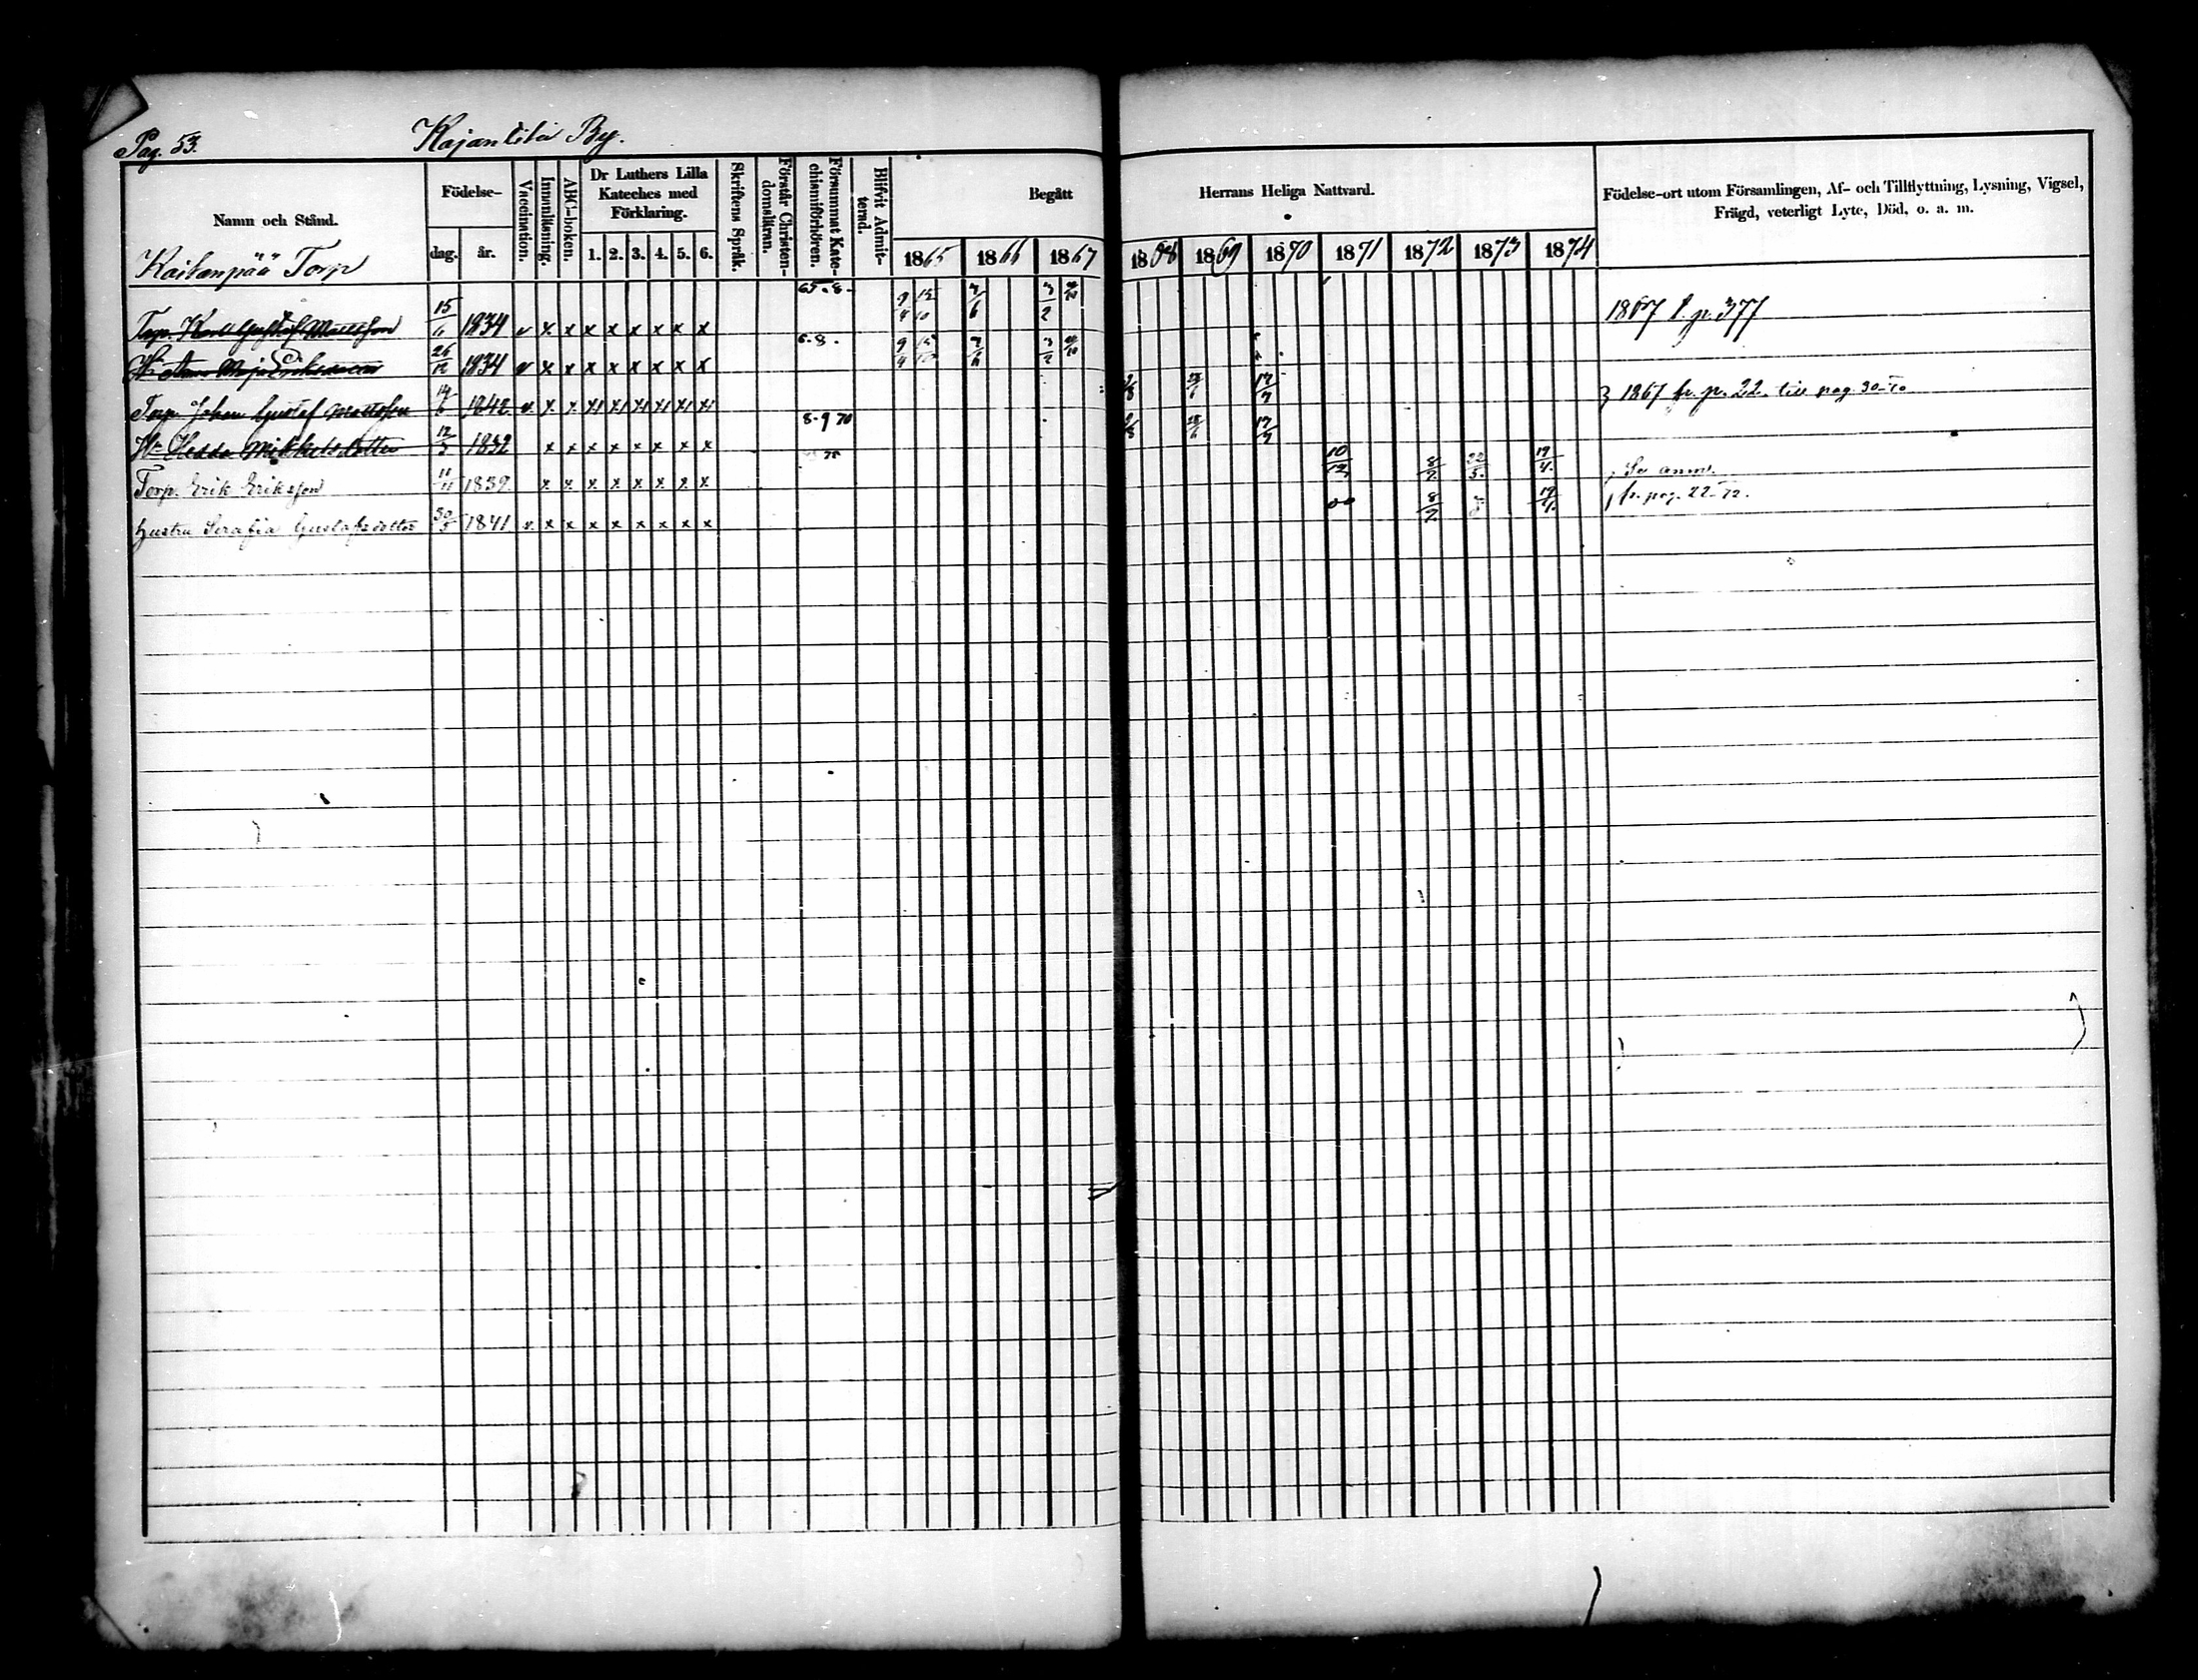 Pag. 53. Kajantila By.
Namn och Stånd.
Födelse-
dag. år.
Vaccination.
Innanläsning.
ABC-boken.
Dr Luthers Lilla
Kateches med
Förklaring.
1. 2. 3. 4. 5. 6.
Skriftens Språk.
Förstår Christen-
domsläran.
Försummat Kate-
chismiförhören.
Blifvit Admit-
terad.
Begått Herrans Heliga Nattvard.
1865 1866 1867 1868 1869 1870 1871 1872 1873 1874
Födelse-ort utom Församlingen, Af- och Tillflyttning, Lysning, Vigsel,
Frägd, veterligt Lyte, Död, o. a. m.
Torp
Torp. Karl Gustaf Mattsson 15/6 1834 v x x x x x x x x 65-8- 9/4 15/10 7/6 3/2 1867 t. p. 377
Hu Anna Maja Eriksdotter 26/12 1834 v x x x x x x x x 6-8- 9/4 15/10 7/6 3/2
Torp. Johan Gustaf Mattsson 1842 v x x x x x x x x 17/7 1867 fr. p. 22. till pag. 30-70
Hu Hedda Mikkelsdotter 12/3 1832 x x x x x x x x 8-9 70 17/7
Torp. Erik Eriksson 11/11 1839 x x x x x x x x 10/12 8/7 22/5 19/4 Se anm.
hustru Serafia Gustafsdotter 30/5 1841 v x x x x x x x x 8/7 19/4 fr. pag. 22-72.